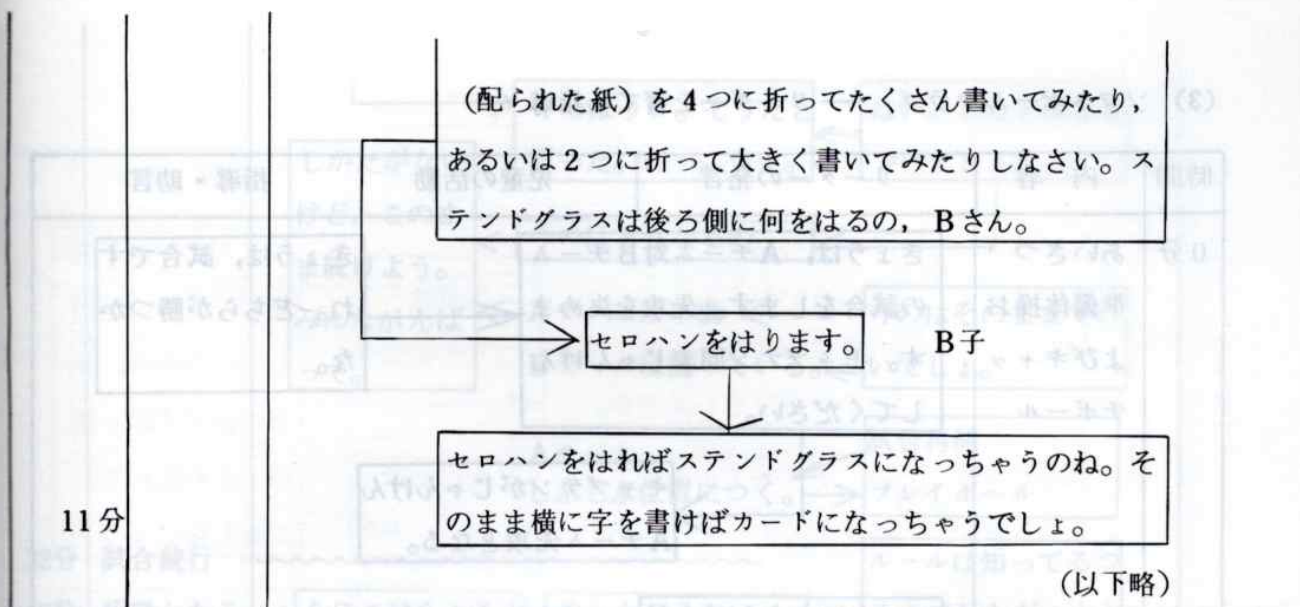 (配られた紙)を4つに折ってたくさん書いてみたり,
あるいは2つに折って大きく書いてみたりしなさい。ス
テンドグラスは後ろ側に何をはるの, Bさん。
セロハンをはります。 B子
セロハンをはればステンドグラスになっちゃうのね。そ
11分 のまま横に字を書けばカードになっちゃうでしょ。
(以下略)